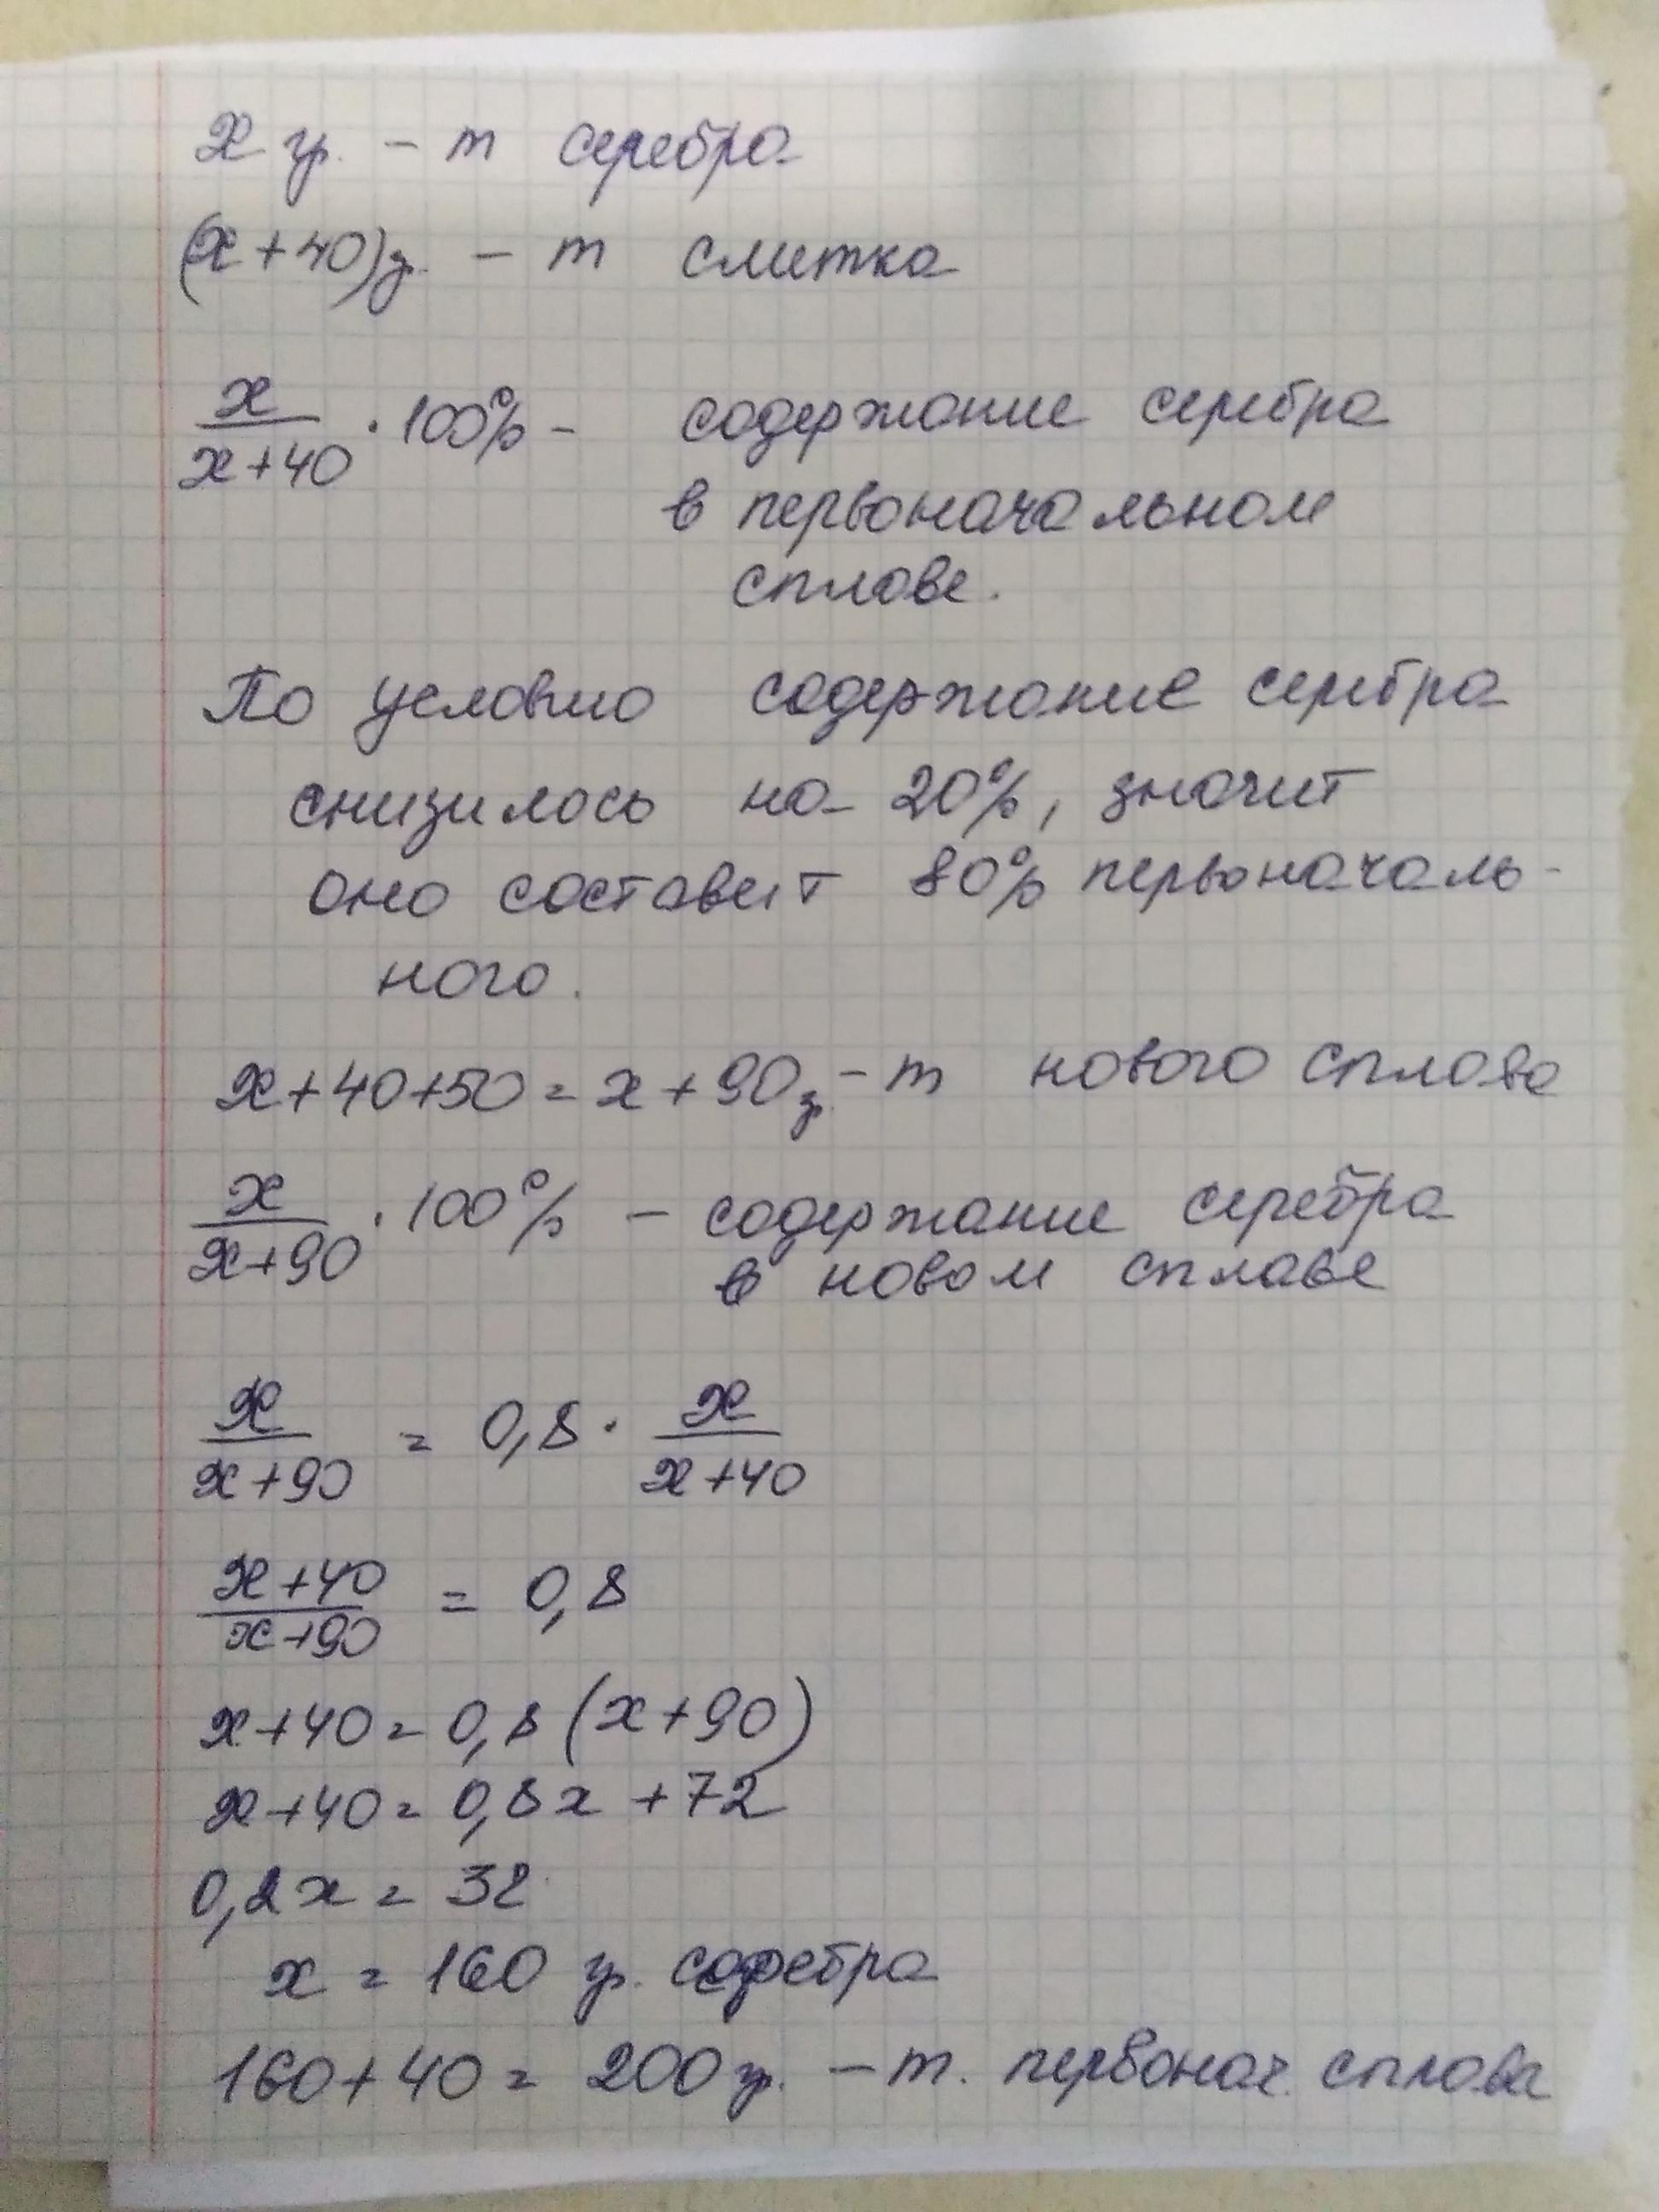 x гр. - m серебра
(x+40)г. - m слитка
x/(x+40) · 100% - содержание серебра
в первоначальном
сплаве.
По условию содержание серебра
снизилось на 20%, значит
оно составит 80% первоначаль-
ного.
x+40+50 = x+90г - m нового сплава
x/(x+90) · 100% - содержание серебра
в новом сплаве
x/(x+90) = 0,8 · x/(x+40)
(x+40)/(x+90) = 0,8
x+40 = 0,8 (x+90)
x+40 = 0,8x +72
0,2x = 32
x = 160 гр. серебра
160+40 = 200 гр. - m. первонач. сплава